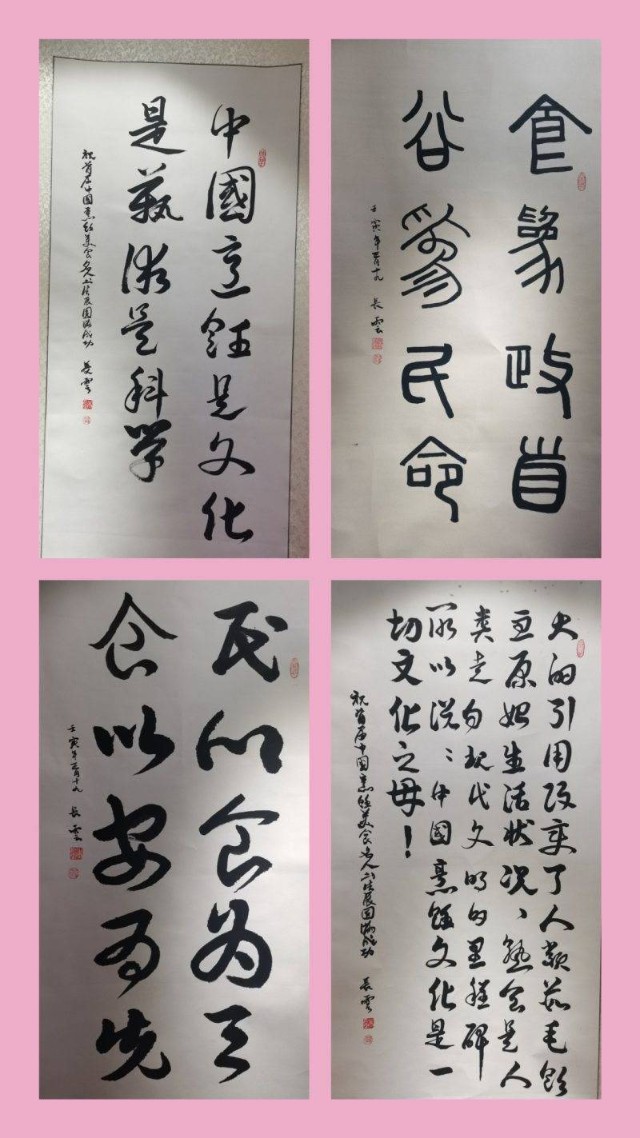 中國烹飪是文化
是藝術是科学
祝首届中国烹飪美食名人书法展圆满成功
長雲
食爲政首
谷爲民命
壬寅年三月十九
長雲
民以食为天
食以安为先
壬寅年三月十九
長雲
火的引用改变了人类茹毛飲
血原始生活状况、熟食是人
类走向现代文明的里程碑
所以说：中国烹飪文化是一
切文化之母！
祝首届中国烹飪美食名人书法展圆满成功
長雲